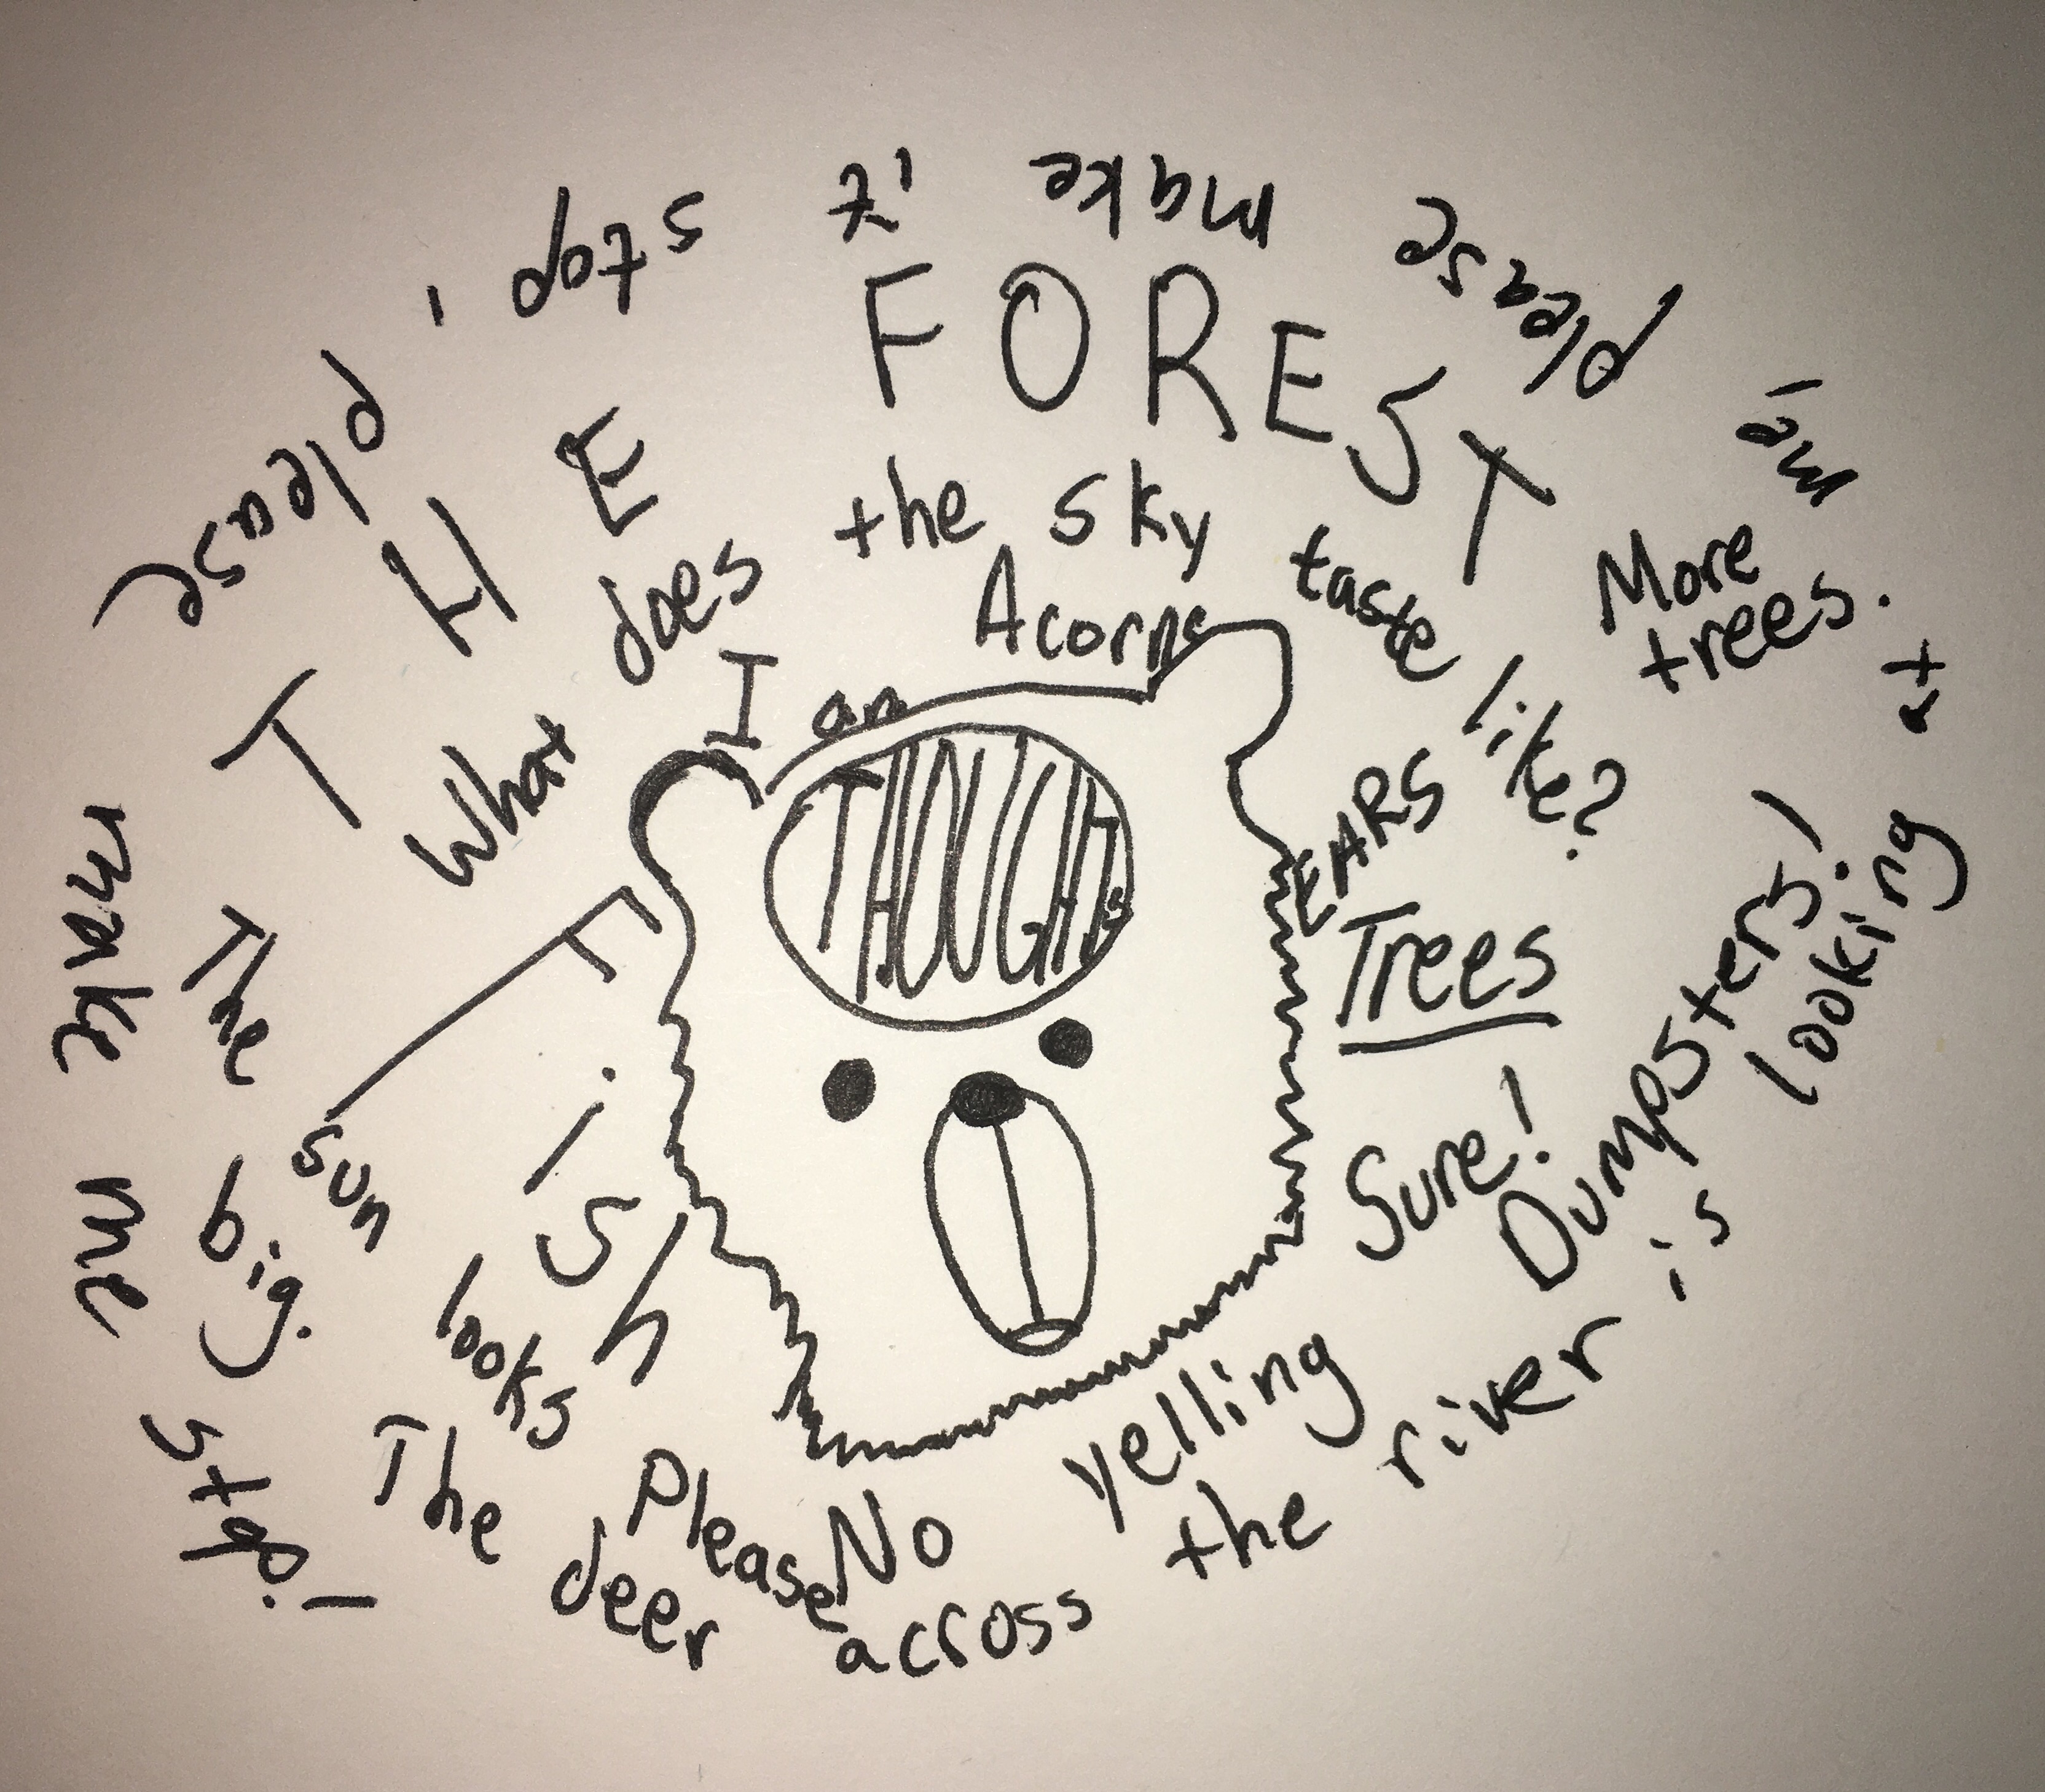 THE FOREST
What does the sky taste like?
I am
Acorns
THOUGHTS
EARS
Trees
More trees.
Sure!
Dumpsters!
No yelling
Please
Fish
The big sun looks
The deer across the river is looking at me, please make it stop, please make me stop!